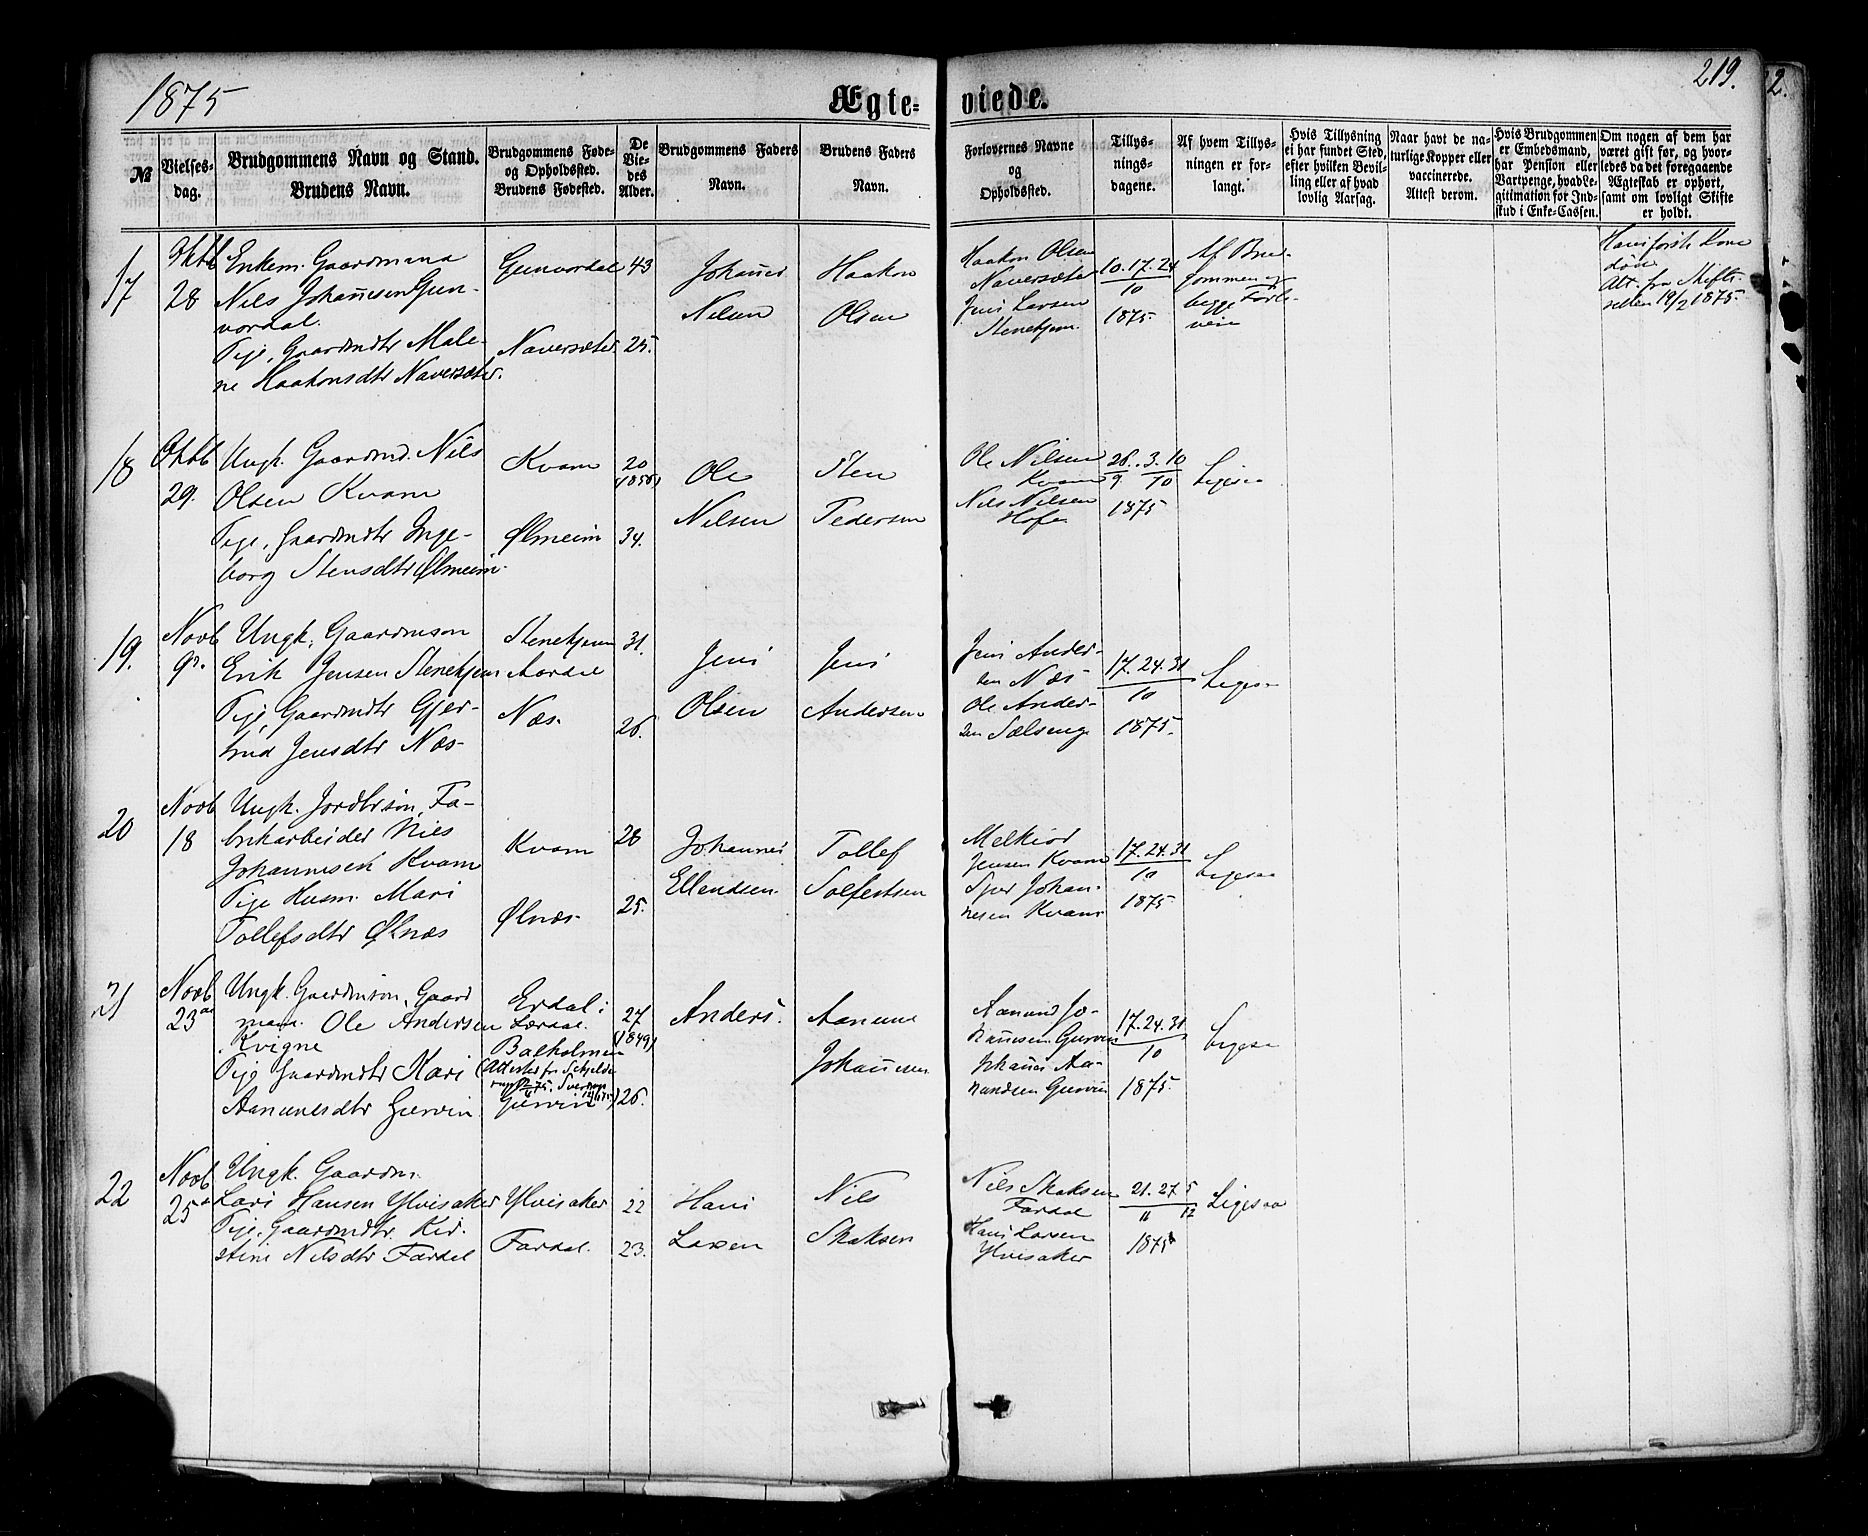 1875
Ægte-
viede.
219.
2.
№
Vielses-
dag.
Brudgommens Navn og Stand.
Brudens Navn.
Brudgommens Føde-
og Opholdssted.
Brudens Fødested.
De
Vie-
des
Alder.
Brudgommens Faders
Navn.
Brudens Faders
Navn.
Forlovernes Navne
og
Opholdssted.
Tillys-
nings-
dagene.
Af hvem Tillys-
ningen er for-
langt.
Hvis Tillysning
ei har fundet Sted,
efter hvilken Bevil-
ling eller af hvad
lovlig Aarsag.
Naar havt de na-
turlige Kopper eller
vaccinerede.
Attest derom.
Hvis Brudgommen
er Embedsmand,
har Pension eller
Vartpenge, hvad Le-
gitimation for Ind-
skud i Enke-Cassen.
Om nogen af dem har
været gift før, og hvor-
ledes da det foregaaende
Ægteskab er ophørt,
samt om lovligt Skifte
er holdt.
17
Oktb
28
Enkem. Gaardmand
Nils Johannesen Gun-
vordal.
Pige, Gaardmdtr Male-
ne Haakonsdtr Naversæter.
Gunvordal
Naversæter
43
25.
Johannes
Nilsen
Haakon
Olsen
Haakon Olsen
Naversæter
Jens Larsen
Stenehjem.
10. 17. 24
10
1875.
Af Brud-
gommen og
begge Forlo-
vere
Hans første Kone
død
Att. fra Skifte-
retten 19/2 1875.
18
Oktb
29.
Ungk. Gaardmd. Nils
Olsen Kvam
Pige, Gaardmdtr Inge-
borg Stensdtr Ølmeim.
Kvam
Ølmeim
20
34.
Ole
Nilsen
Sten
Pedersen
Ole Nilsen
Kvam
Nils Nilsen
Hofe
26. 3. 10
9 10
1875
Ligesaa
19.
Novb
9de.
Ungk. Gaardmsøn
Erik Jensen Stenehjem
Pige, Gaardmdtr Gjer-
trud Jensdtr Næs.
Stenehjem
Aardal
Næs.
31.
26.
Jens
Olsen
Jens
Andersen
Jens Ander-
sen Næs.
Ole Ander-
sen Sælseng
17. 24. 31
10
1875.
Ligesaa
20
Novb
18
Ungk. Jordbrsøn, Fa-
brikarbeider Nils
Johannesen Kvam
Pige Husm. Mari
Tollefsdtr Ølnæs
Kvam
Ølnæs.
28
25.
Johannes
Ellendsen
Tollef
Solfestsen
Melkior
Jensen Kvam
Sjur Johan-
nesen Kvam
17. 24. 31
10
1875.
Ligesaa
21
Novb
23de
Ungk. Gaardmsøn, Gaard
mand. Ole Andersen
Kvigne
Pige Gaardmdtr Kari
Aamundsdtr Gurvin
Erdal i
Lærdal.
Balholmen
Gurvin
27
(1849)
26.
Anders.
Aamund
Johannesen
Aamund Jo-
hannesen Gurvin
Johannes Aa-
mundsen Gurvin
17. 24. 31
10
1875.
Ligesaa
22
Novb
25de
Ungk. Gaardm.
Lars Hansen Ylvisaker
Pige, Gaardmdtr. Kir-
stine Nilsdtr Fardal
Ylvisaker
Fardal.
22
23.
Hans
Larsen
Nils
Skaksen
Nils Skaksen
Fardal
Hans Larsen
Ylvisaker
21. 27 5
11 12
1875
Ligesaa